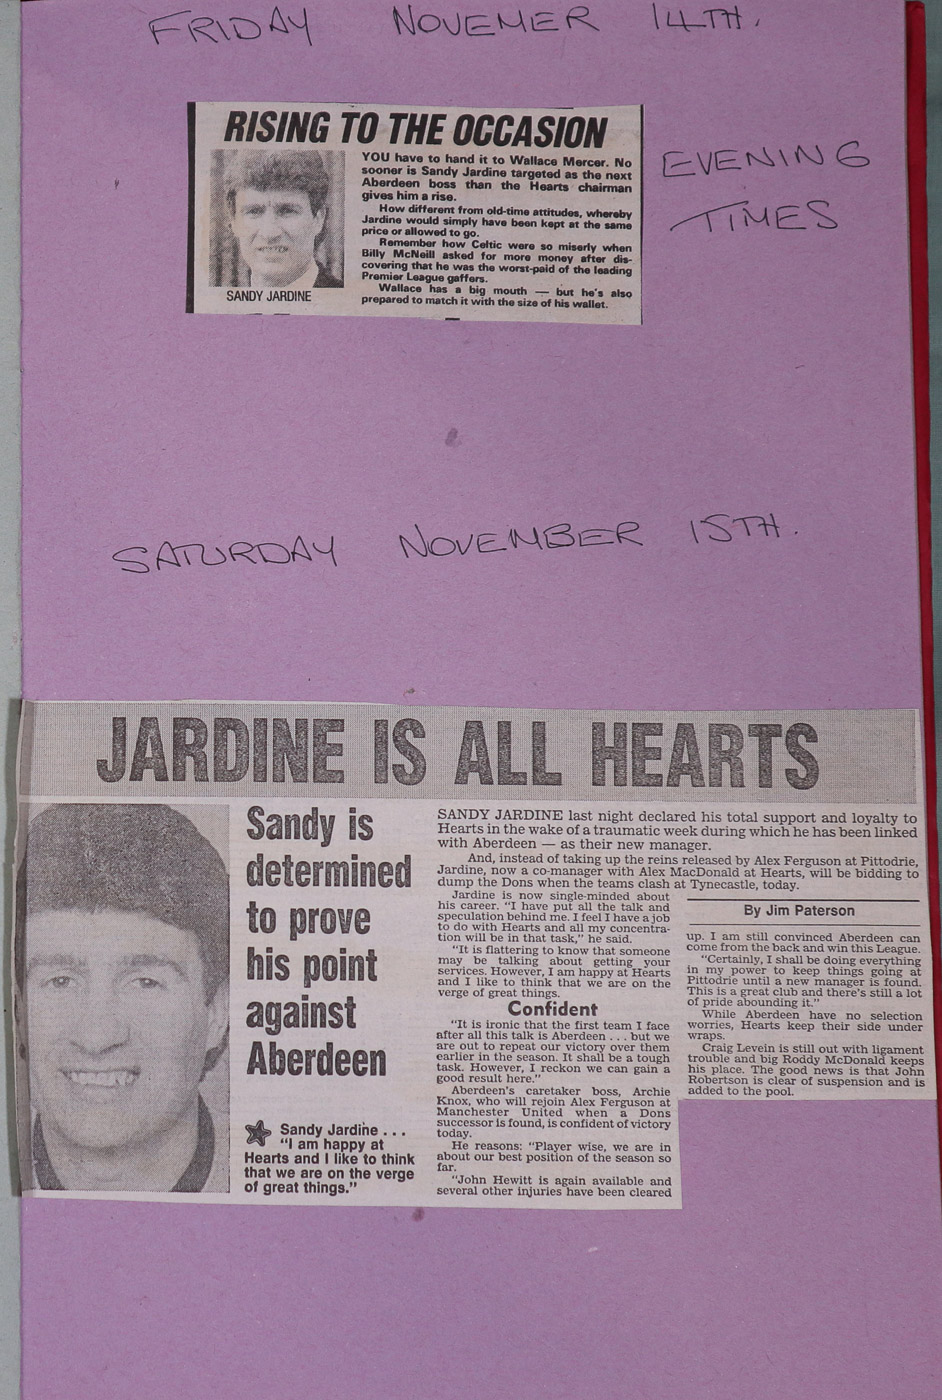 FRIDAY NOVEMER 14TH.
RISING TO THE OCCASION
SANDY JARDINE
YOU have to hand it to Wallace Mercer. No
sooner is Sandy Jardine targeted as the next
Aberdeen boss than the Hearts chairman
gives him a rise.
How different from old-time attitudes, whereby
Jardine would simply have been kept at the same
price or allowed to go.
Remember how Celtic were so miserly when
Billy McNeill asked for more money after dis-
covering that he was the worst-paid of the leading
Premier League gaffers.
Wallace has a big mouth — but he's also
prepared to match it with the size of his wallet.
EVENING
TIMES
SATURDAY NOVEMBER 15TH.
JARDINE IS ALL HEARTS
Sandy is
determined
to prove
his point
against
Aberdeen
Sandy Jardine . . .
"I am happy at
Hearts and I like to think
that we are on the verge
of great things."
SANDY JARDINE last night declared his total support and loyalty to
Hearts in the wake of a traumatic week during which he has been linked
with Aberdeen — as their new manager.
And, instead of taking up the reins released by Alex Ferguson at Pittodrie,
Jardine, now a co-manager with Alex MacDonald at Hearts, will be bidding to
dump the Dons when the teams clash at Tynecastle, today.
Jardine is now single-minded about
his career. "I have put all the talk and
speculation behind me. I feel I have a job
to do with Hearts and all my concentra-
tion will be in that task," he said.
"It is flattering to know that someone
may be talking about getting your
services. However, I am happy at Hearts
and I like to think that we are on the
verge of great things.
Confident
"It is ironic that the first team I face
after all this talk is Aberdeen . . . but we
are out to repeat our victory over them
earlier in the season. It shall be a tough
task. However, I reckon we can gain a
good result here."
Aberdeen's caretaker boss, Archie
Knox, who will rejoin Alex Ferguson at
Manchester United when a Dons
successor is found, is confident of victory
today.
He reasons: "Player wise, we are in
about our best position of the season so
far.
"John Hewitt is again available and
several other injuries have been cleared
By Jim Paterson
up. I am still convinced Aberdeen can
come from the back and win this League.
"Certainly, I shall be doing everything
in my power to keep things going at
Pittodrie until a new manager is found.
This is a great club and there's still a lot
of pride abounding it."
While Aberdeen have no selection
worries, Hearts keep their side under
wraps.
Craig Levein is still out with ligament
trouble and big Roddy McDonald keeps
his place. The good news is that John
Robertson is clear of suspension and is
added to the pool.